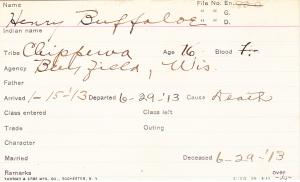 Name File No. En.
Henry Buffaloe " " D.
Indian name " " G.
Tribe Chippewa Age 16 Blood F.
Agency Bayfield, Wis.
Father
Arrived 1-15-'13 Departed 6-29-'13 Cause Death
Class entered Class left
Trade Outing
Character
Married Deceased 6-29-'13
Remarks over